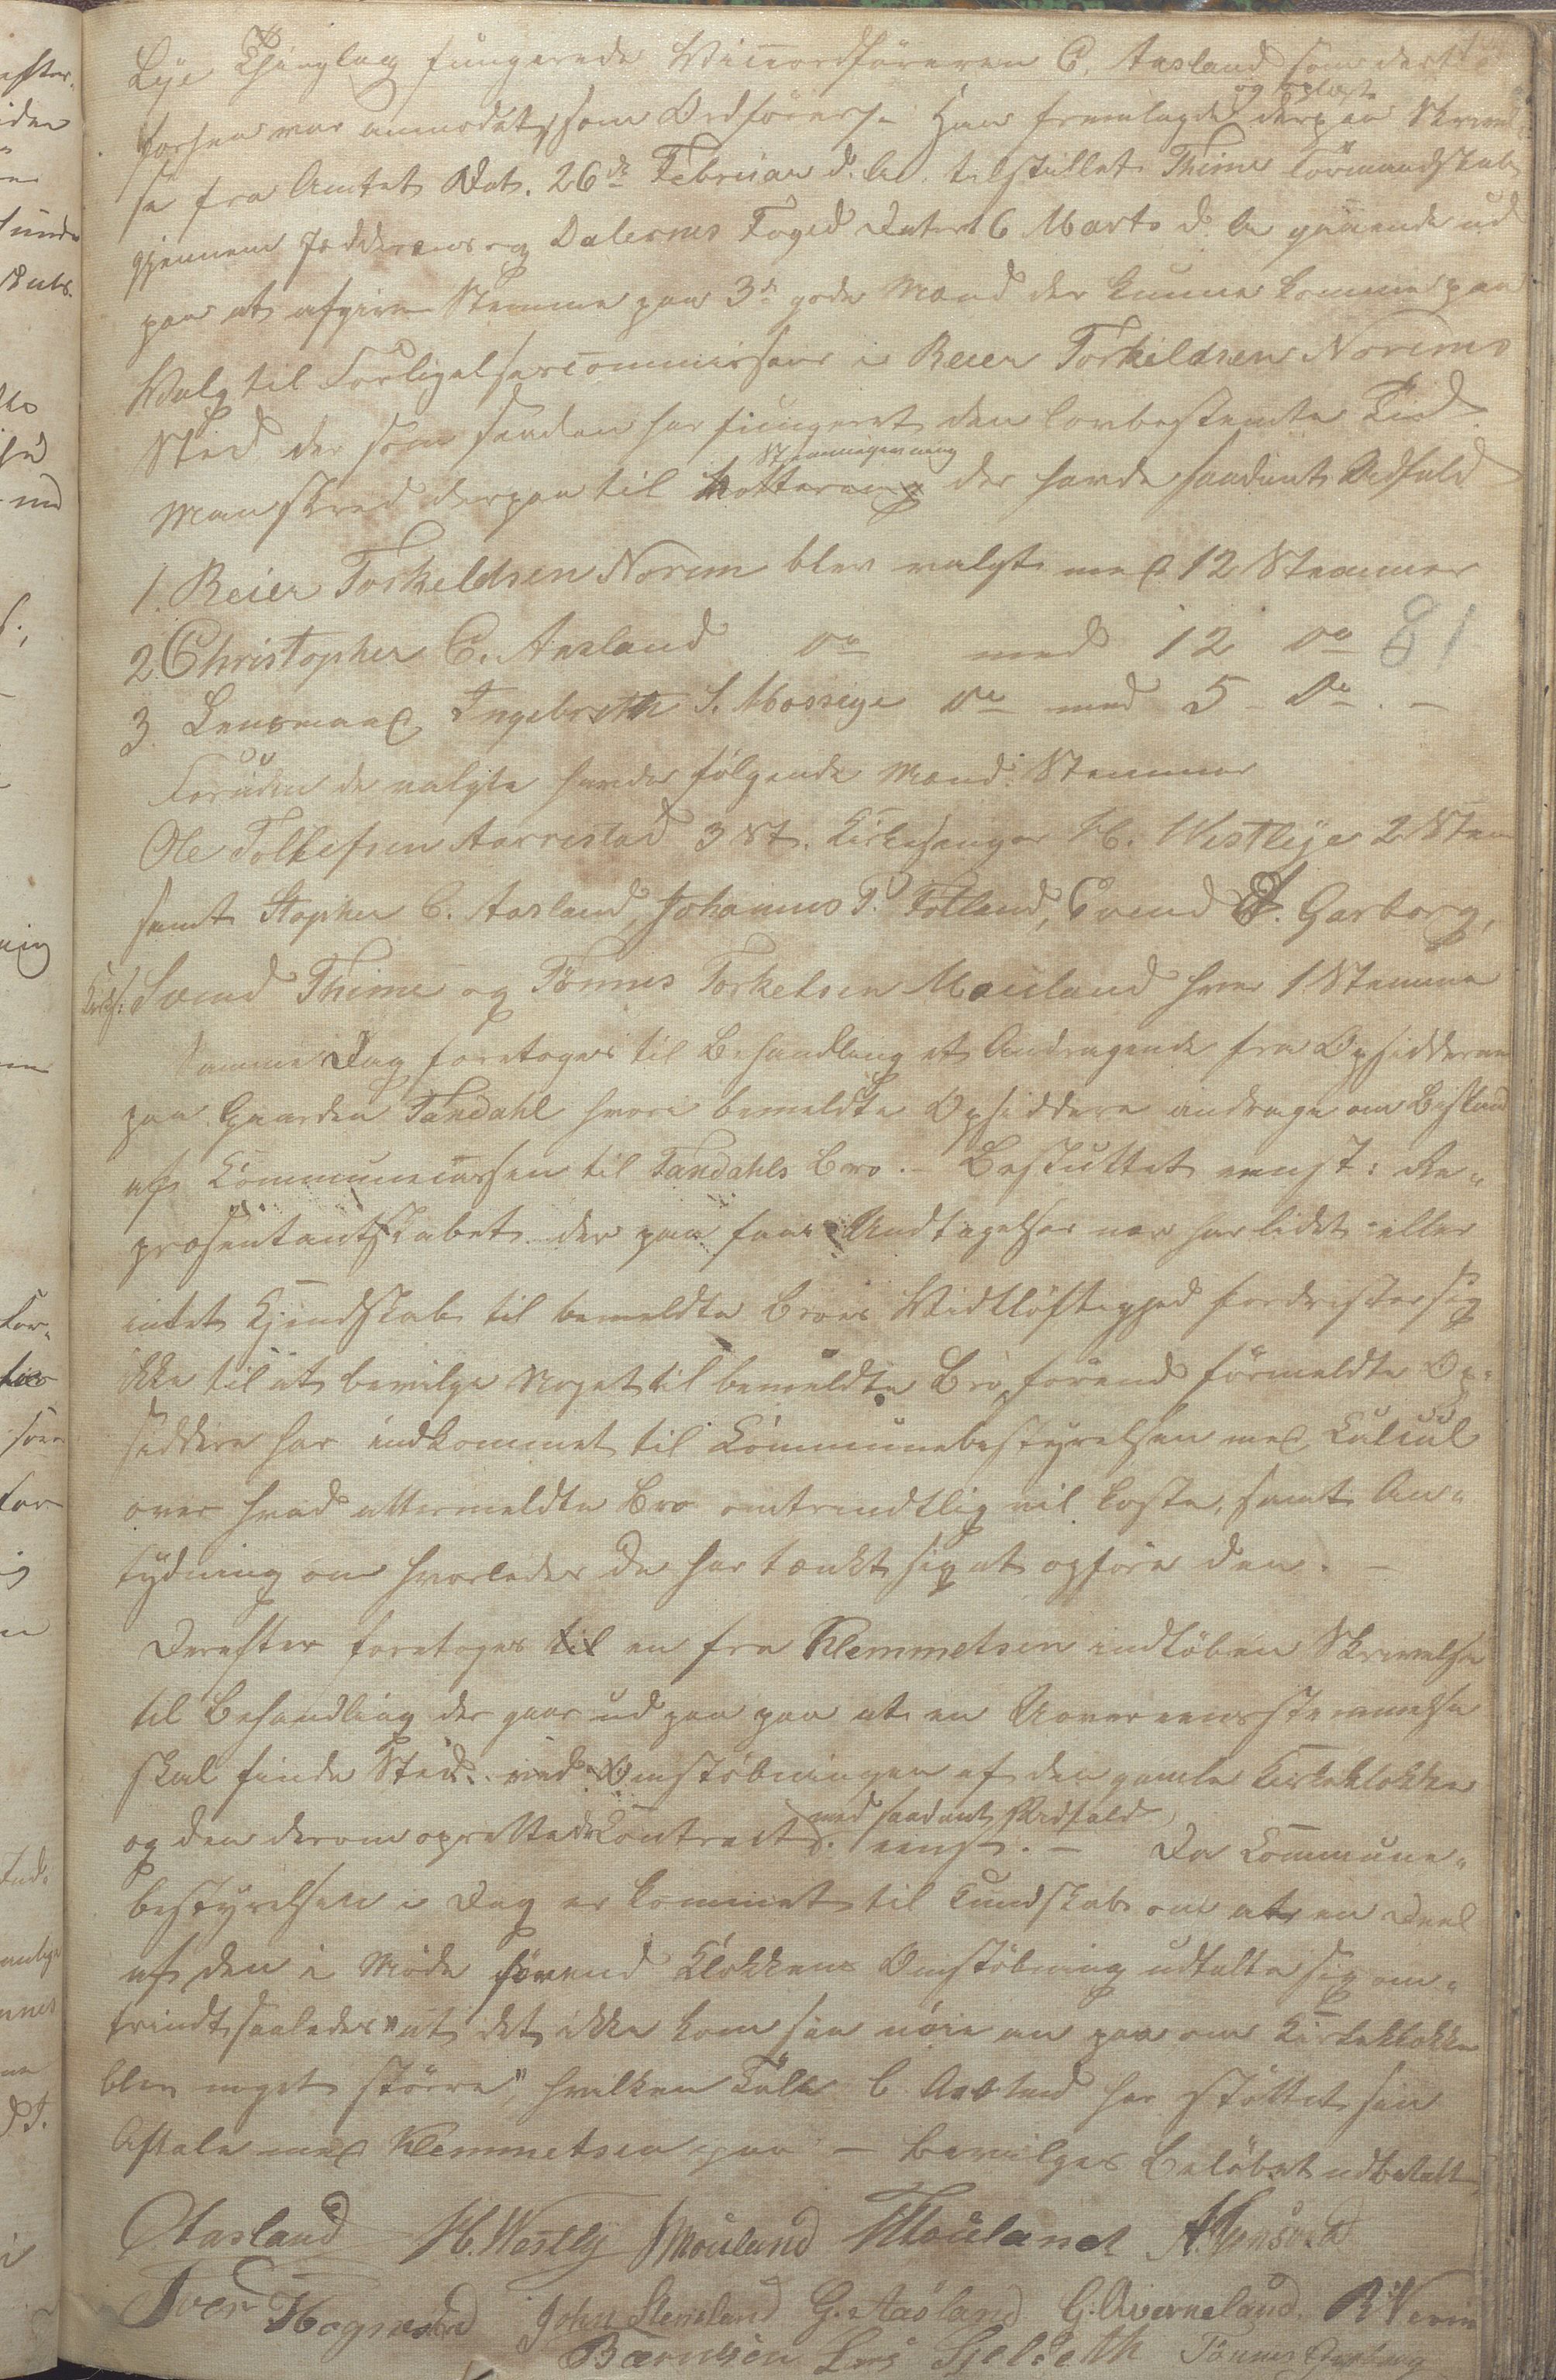 Lye Thinglag fungerede Viceordföreren C. Aasland som dert
forhen var anmodet, som Ordförer. – Han fremlagde og oplæste derpaa Skrivel-
se fra Amtet Dat. 26de Februar d. A. tilstillet Thime Formandskab
gjennem Jedderens og Dalernes Foged Datert 6 Marts d. A. gaaende ud
paa at afgive Stemme paa 3de gode Mænd der kunne komme paa
Valg til Forligelsescommissair i Reier Torkildsen Norems
Sted der som saadan har fungeret den lovbestemte Tid.
Man skred derpaa til Stemmegivning der havde saadant Udfald
1. Reier Torkeldsen Norem blev valgt med 12 Stemmer
2 Christopher C. Aasland do med 12 do 81
3 Lensmand Ingebreth S. Mossige do med 5 – do. –
Foruden de valgte havde følgende Mænd Stemmer
Ole Tollefsen Aarrestad 3 St. Kirkesanger H. Westlye 2 Stem
samt Stopher C. Aasland, Johannes T. Tolland, Evend J. Garborg,
Kirkes: Svend Thime og Tönnes Torkelsen Mouland hver 1 Stemme
Samme Dag foretoges til Behandling et Andragende fra Opsidderne
paa Gaarden Tandahl hvori bemeldte Opsiddere andrage om Bistand
af Communecassen til Tandahls Bro. – Besluttet eenst: Re-
præsentantskabet der paa faae Undtagelser nær har lidet eller
intet Kjendskab til bemeldte Broes Vidtlöftighed fordrister sig
ikke til at bevilge Noget til bemeldte Bro, förend formeldte Op-
siddere har indkommet til Communebestyrelsen med Calcul
over hvad attermeldte Bro omtrendtlig vil koste, samt An-
tydning om hvorledes de har tænkt sig at opföre den. –
Derefter foretoges til en fra Klemmetsen indlöben Skrivelse
til Behandling der gaar ud paa paa at en Uovereensstemmelse
skal finde Sted ved Omstöbningen af den gamle Kirkeklokke
og den derom oprettede Contract. med saadant Udfald eenst. – Da Commune-
bestyrelsen i Dag er kommet til Kundskab om at en Deel
af den i Möde förend Klokkens Omstöbning udtalte sig om-
trindt saaledes "at det ikke kom saa nöie an paa om Kirkeklokken
blev noget större", hvilken Tale C. Aasland har stöttet sin
Aftale med Klemmetsen paa – bevilges Belöbet udbetalt
C Aasland H. Westly J Mouland T Mouland A.
Iver Hognestad John Steneland G. Aasland G. Qverneland. R. T. Norem
Bærntsen Lars Sjelseth Tönnes Garborg